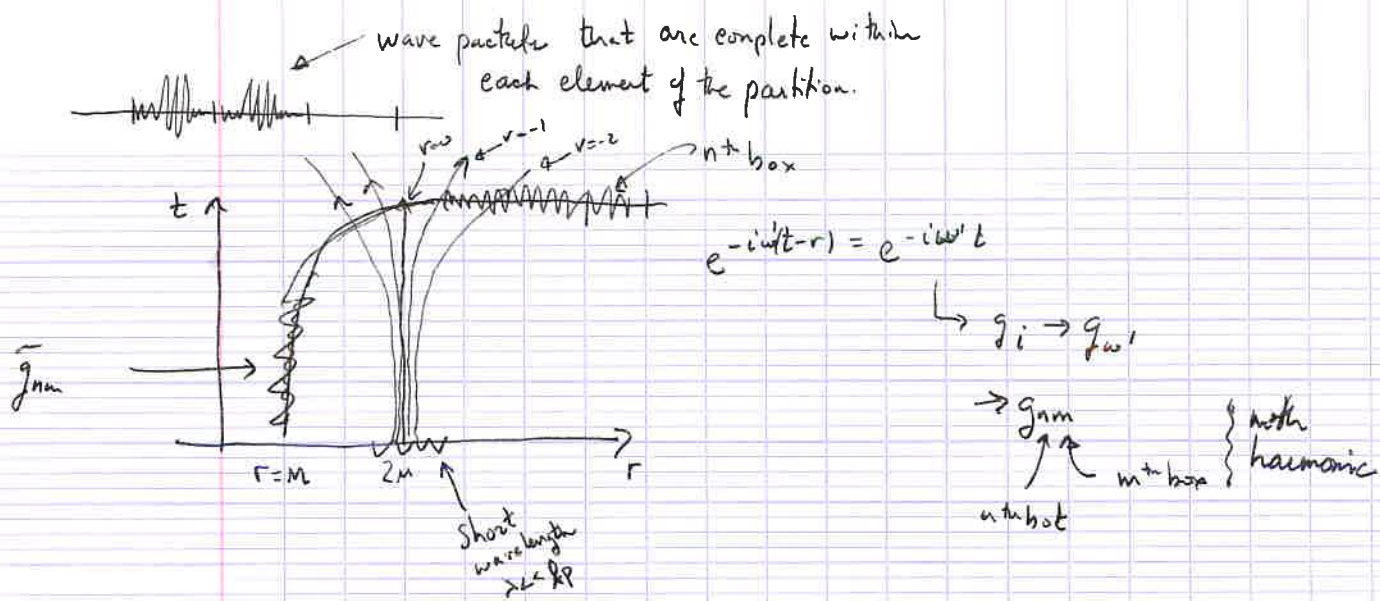 wave packets that are complete within
each element of the partition.
v=0
v=-1
v=-2
nth box
t
e^{-iω'(t-r)} = e^{-iω't}
↳ g_i → g_ω'
g̅_{nm}
→ g_{nm}
mth box
nth bot
} mth
harmonic
r=M
2M
r
Short
wavelength
λ<< lp